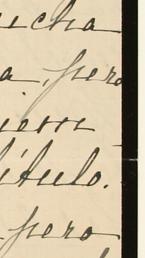 icha
a, pero
uem
ítulo.
pero